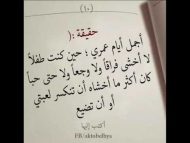 (١٠)
حقيقة :(
أجمل أيام عمري ؛ حين كنت طفلاً
لا أخشى فراقاً ولا وجعاً ولا حتى حباً
كان أكثر ما أخشاه أن تنكسر لعبتي
أو أن تضيع
أكتب إليها
FB/aktobelhya